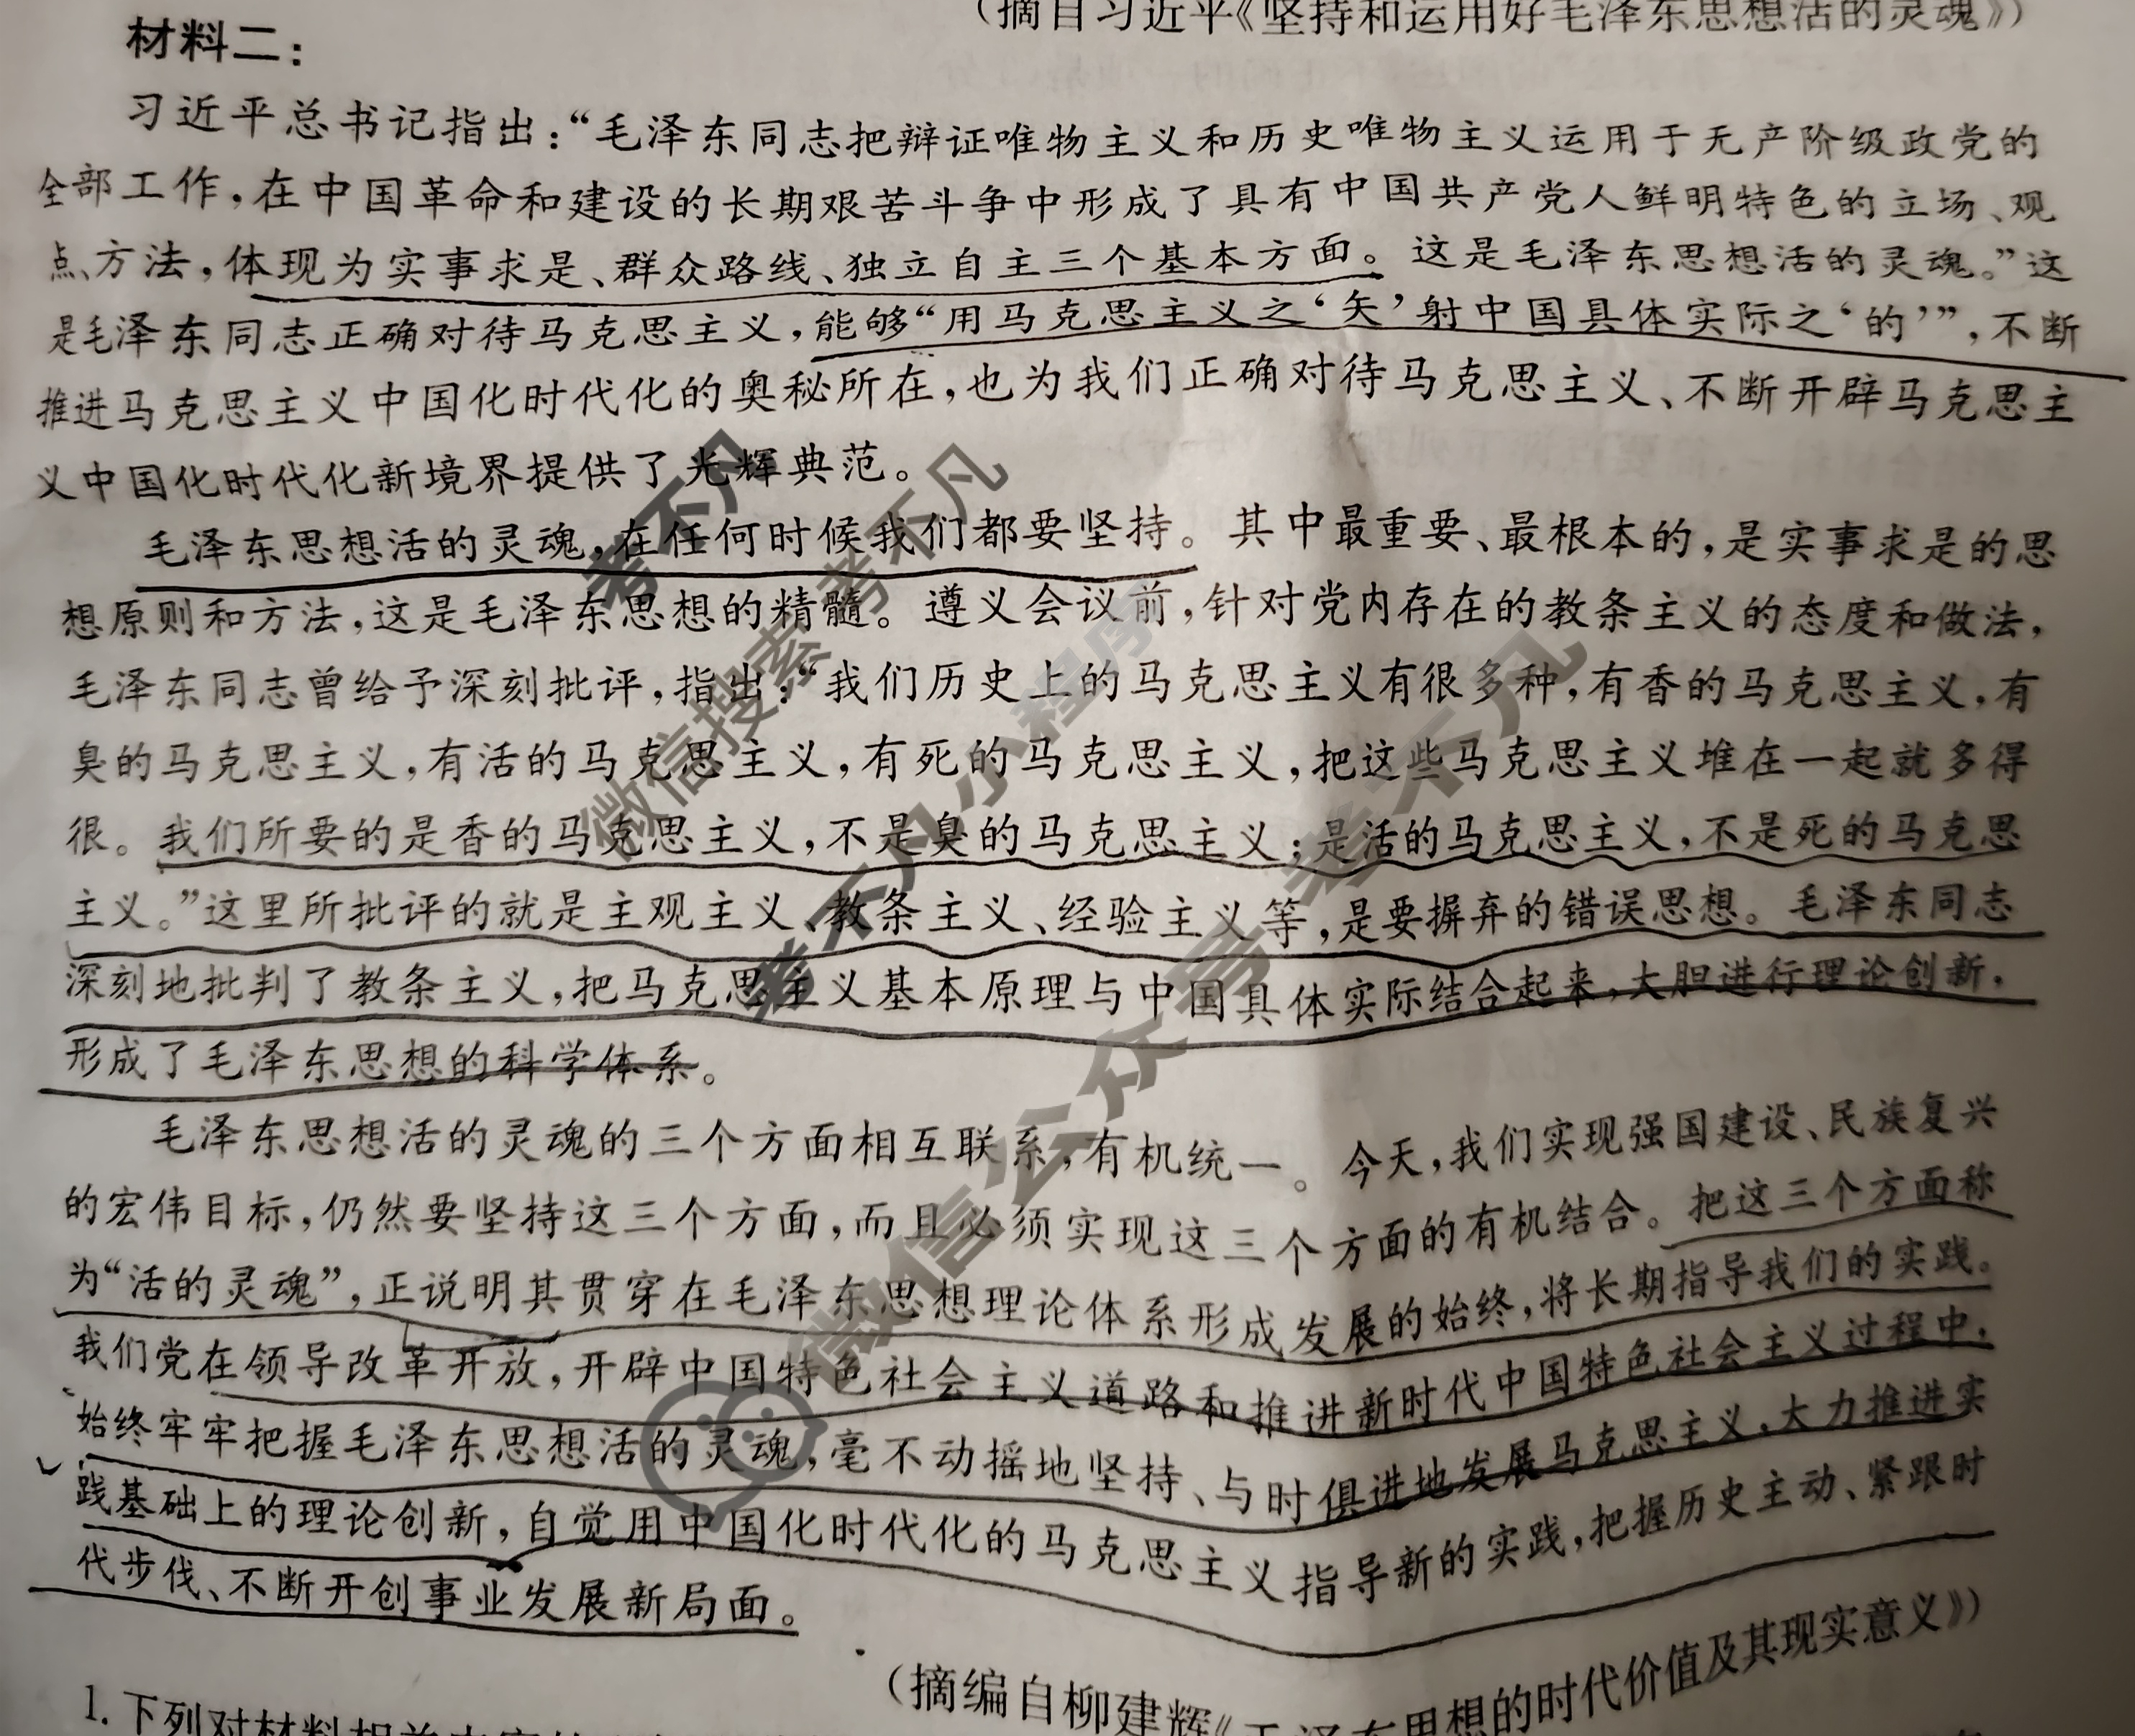 (摘自习近平《坚持和运用好毛泽东思想活的灵魂》)
材料二:
习近平总书记指出:“毛泽东同志把辩证唯物主义和历史唯物主义运用于无产阶级政党的
全部工作,在中国革命和建设的长期艰苦斗争中形成了具有中国共产党人鲜明特色的立场、观
点、方法,体现为实事求是、群众路线、独立自主三个基本方面。这是毛泽东思想活的灵魂。”这
是毛泽东同志正确对待马克思主义,能够“用马克思主义之‘矢’射中国具体实际之‘的’”,不断
推进马克思主义中国化时代化的奥秘所在,也为我们正确对待马克思主义、不断开辟马克思主
义中国化时代化新境界提供了光辉典范。
毛泽东思想活的灵魂,在任何时候我们都要坚持。其中最重要、最根本的,是实事求是的思
想原则和方法,这是毛泽东思想的精髓。遵义会议前,针对党内存在的教条主义的态度和做法,
毛泽东同志曾给予深刻批评,指出:“我们历史上的马克思主义有很多种,有香的马克思主义,有
臭的马克思主义,有活的马克思主义,有死的马克思主义,把这些马克思主义堆在一起就多得
很。我们所要的是香的马克思主义,不是臭的马克思主义;是活的马克思主义,不是死的马克思
主义。”这里所批评的就是主观主义、教条主义、经验主义等,是要摒弃的错误思想。毛泽东同志
深刻地批判了教条主义,把马克思主义基本原理与中国具体实际结合起来,大胆进行理论创新,
形成了毛泽东思想的科学体系。
毛泽东思想活的灵魂的三个方面相互联系,有机统一。今天,我们实现强国建设、民族复兴
的宏伟目标,仍然要坚持这三个方面,而且必须实现这三个方面的有机结合。把这三个方面称
为“活的灵魂”,正说明其贯穿在毛泽东思想理论体系形成发展的始终,将长期指导我们的实践。
我们党在领导改革开放,开辟中国特色社会主义道路和推进新时代中国特色社会主义过程中,
始终牢牢把握毛泽东思想活的灵魂,毫不动摇地坚持、与时俱进地发展马克思主义,大力推进实
践基础上的理论创新,自觉用中国化时代化的马克思主义指导新的实践,把握历史主动、紧跟时
代步伐、不断开创事业发展新局面。
(摘编自柳建辉《毛泽东思想的时代价值及其现实意义》)
1.下列对材料相关内容的
考不凡
微信搜索考不凡
考不凡小程序
微信公众号考不凡